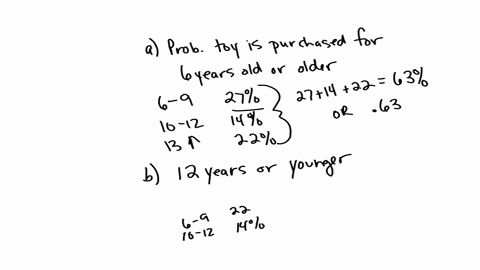 a) Prob. toy is purchased for
6 years old or older
6-9 27% 27+14+22 = 63%
10-12 14% OR .63
13 ↑ 22%
b) 12 years or younger
6-9 22
10-12 14%